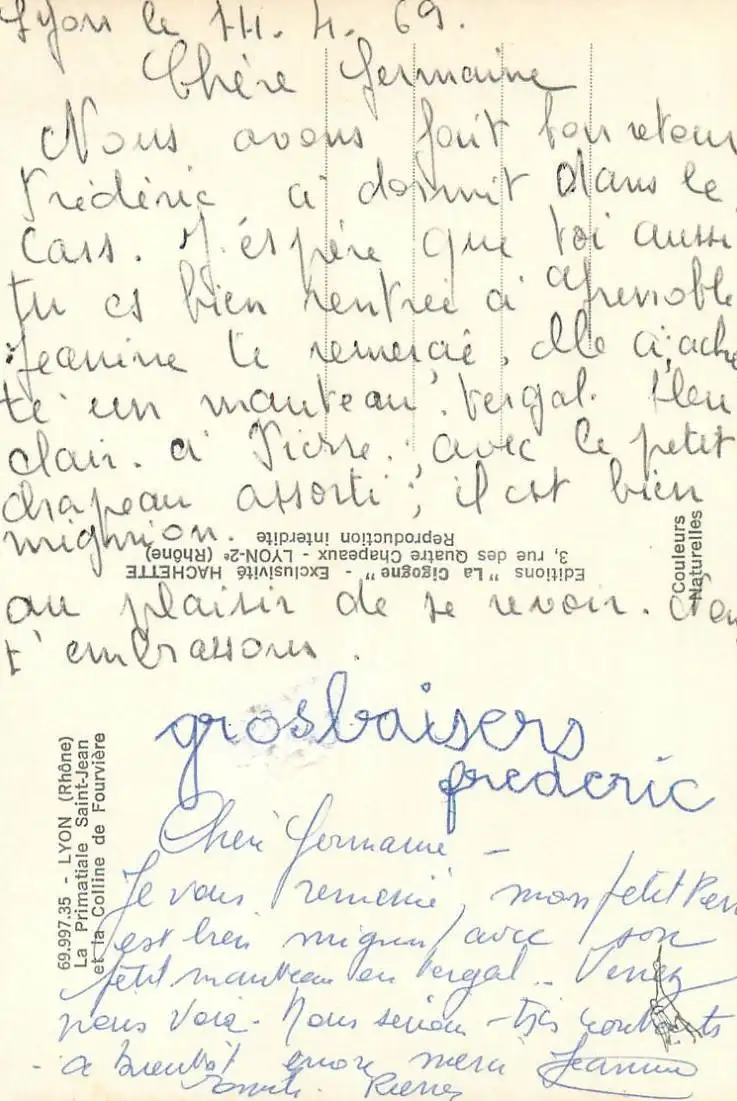 Lyon le 14. 4. 69.
Chère Germaine
Nous avons fait bon retour
Frédéric a dormit dans le
Cars. J'éspère que toi aussi
tu es bien rentrée à Grenoble
Jeanine te remercie, elle a ache
té un manteau tergal. bleu
clair. à Pierre. avec le petit
chapeau assorti, il est bien
mignion.
au plaisir de se revoir.
t'embrassons.
Editions "La Cigogne" - Exclusivité HACHETTE
3, rue des Quatre Chapeaux - LYON-2e (Rhône)
Reproduction interdite
Couleurs
Naturelles
69.997.35 - LYON (Rhône)
La Primatiale Saint-Jean
et la Colline de Fourvière
gros baisers
frederic
Chère Germaine -
Je vous remercie, mon petit Pierre
est bien mignon avec son
petit manteau en tergal. Venez
nous voir. Nous serions très contents
- a bientôt encore merci Jeannine
Pierre